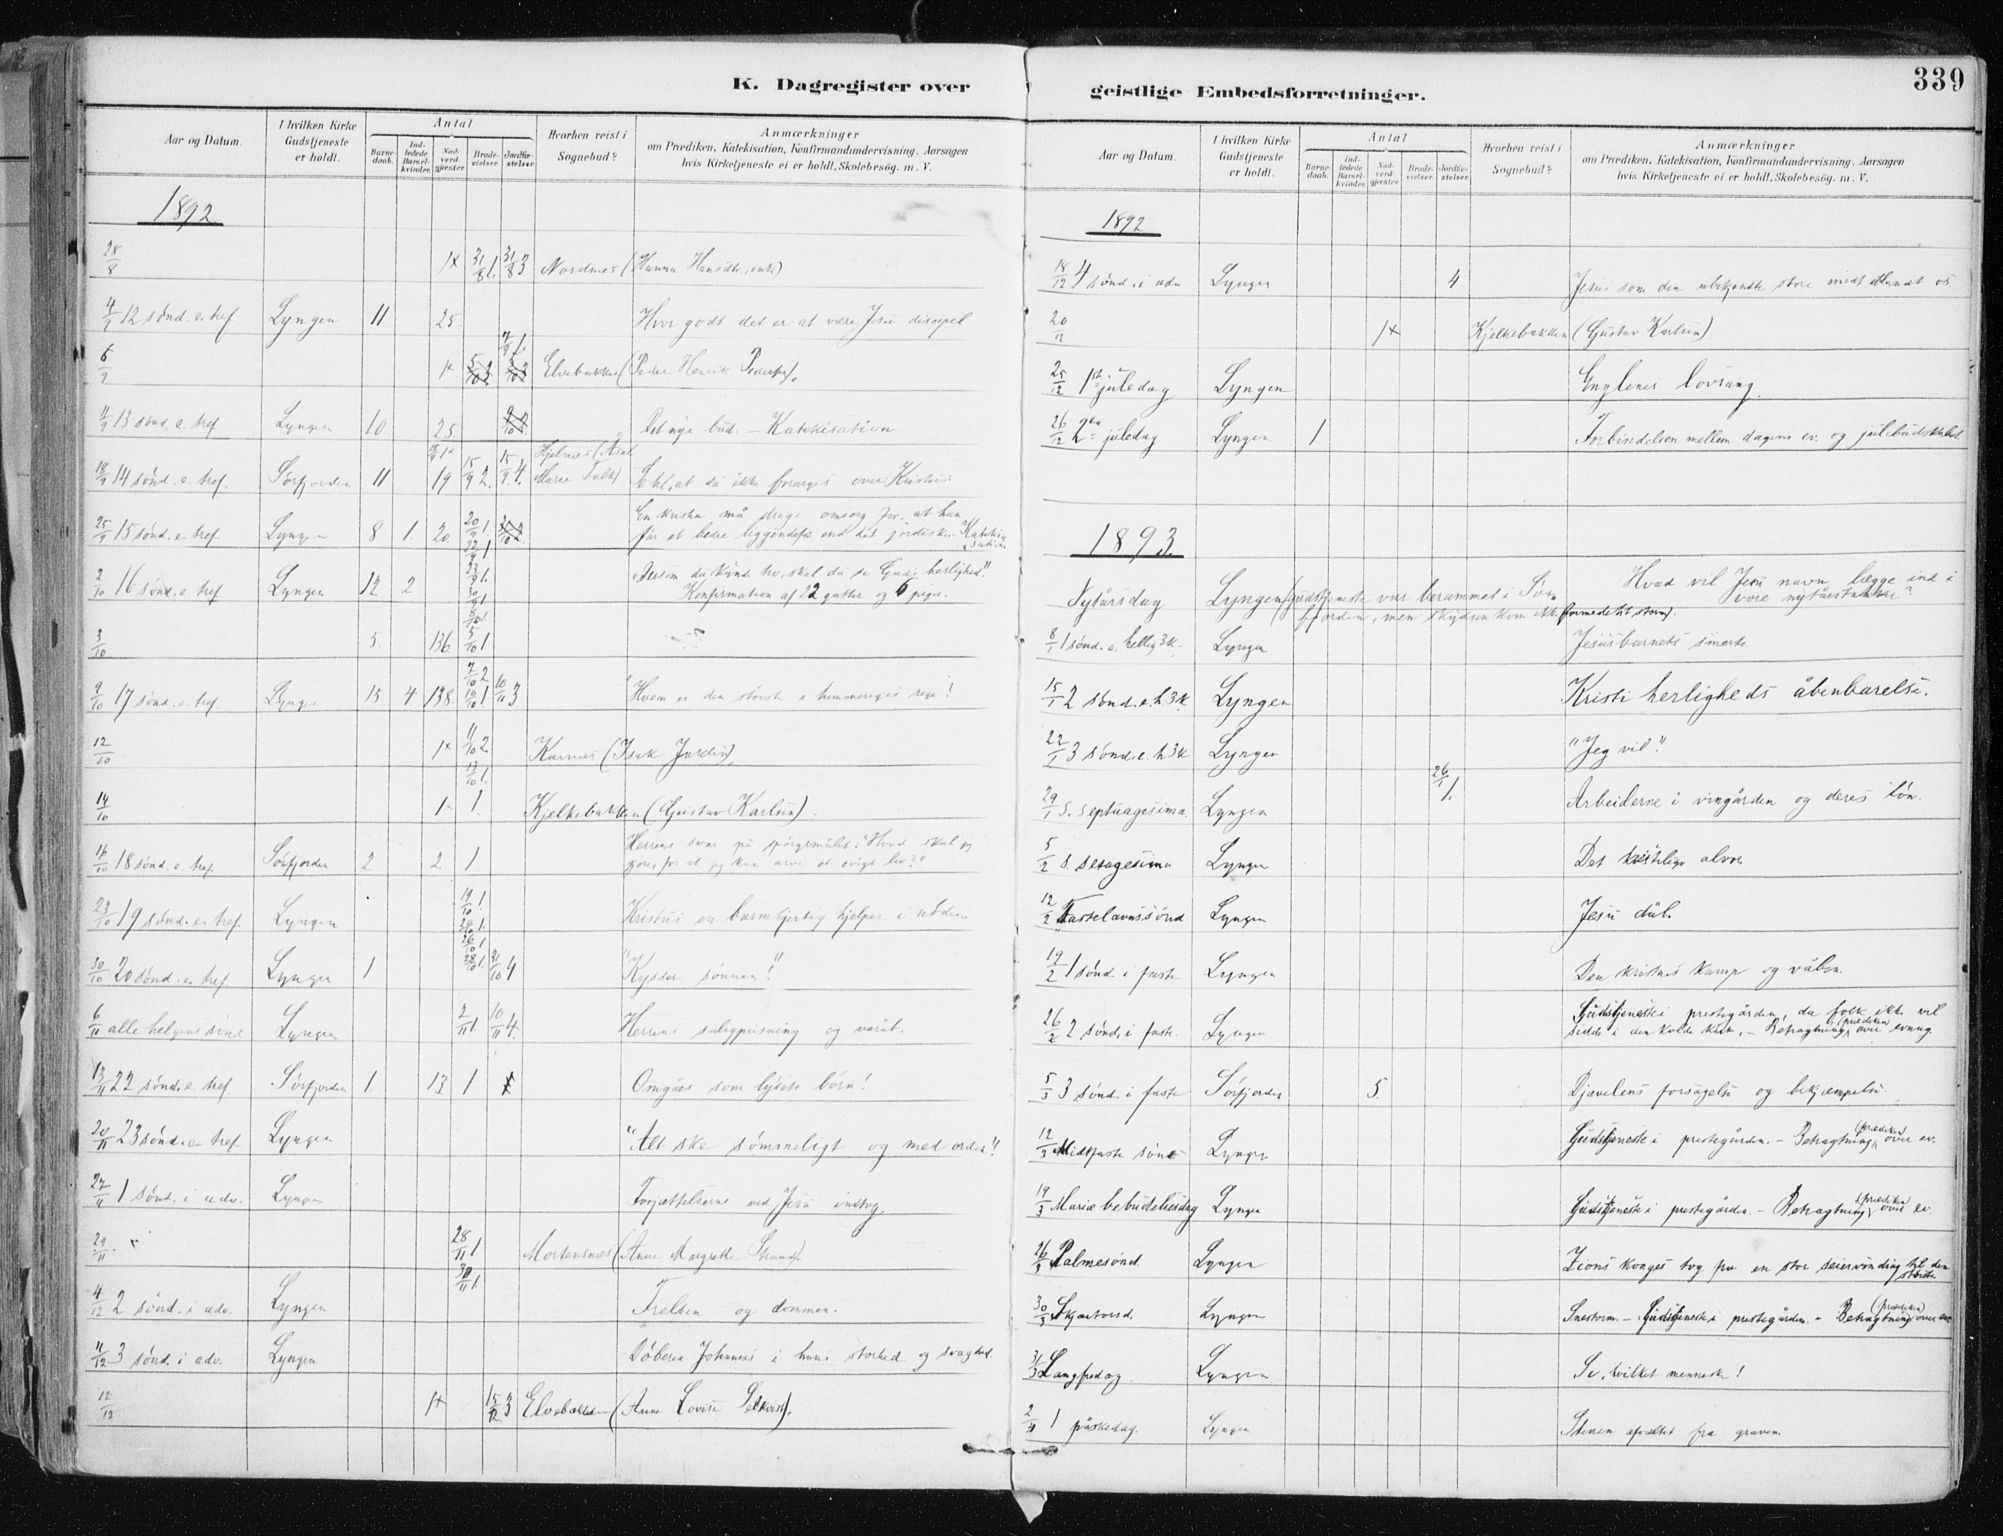 K. Dagregister over
Aar og Datum.
I hvilken Kirke Gudstjeneste er holdt.
Antal
Barne-daab.
Ind-ledede Barsel-kvinder.
Nad-verd-gjester.
Brude-vielser.
Jordfæ-stelser.
Hvorhen reist i Sognebud?
Anmærkninger
om Prædiken, Katekisation, Konfirmandundervisning, Aarsagen
hvis Kirketjeneste ei er holdt, Skolebesøg. m. V.
1892
28/8 1+ 31/8 1. 31/8 3 Nordnes (Hanna Hansdtr, enke)
4/9 12 sønd. e. tref Lyngen 11 25. Hvor godt det er at være Jesu discipel
7/9 1.
6/9 1+ Elvebakken (Peder Henrik Pedersen).
11/9 13 sønd. e. tref Lyngen 10 25. Det nye bud. – Katekisation
18/9 14 sønd. e. tref. Sørfjorden 11 19 15/9 2. 15/9 4. Marie Falk) at du ikke forarges over Kristus.
En kristen må drage omsorg for, at han
25/9 15 sønd. e. tref Lyngen 8 1. 20 20/9 1. får et bedre liggendefæ end det jordiske. Katekisation.
22/9 1.
23/9 1.
2/10 16 sønd. e. tref Lyngen 12 2 skal du se Guds herlighed".
Konfirmation af 22 gutter og 6 piger.
3/10 5. 136. 5/10 1
7/10 2
9/10 17 sønd. e. tref Lyngen 15 4 138 10/10 1 10/11 3 "Hvem er den største i himmeriges rige!
12/10 1+ 11/10 2. Karnes (Isak
13/10 1.
14/10 1+ 1. Kjelkebakken (Gustav Karlsen).
Herrens svar på spørgsmålet: "Hvad skal jeg
16/10 18 sønd. e. tref. Sørfjorden 2 2 1. gjøre, for at jeg kan arve et evigt liv?"
23/10 19 sønd. e. tref. Lyngen 19/10 1. Kristus en barmhjertig hjelper i nøden
30/10 20 sønd. e. tref Lyngen 1 28/10 1. 31/10 4 "Kysser sønnen!"
6/11 alle helgens sønd Lyngen 2/11 1 10/11 4. Herrens saligprisning og
13/11 22 sønd. e. tref. Sørfjorden 1. 13 1 Omgåes som lysets børn!
20/11 23 sønd. e. tref Lyngen "Alt ske sømmeligt og med orden"!
27/11 1 sønd. i adv. Lyngen Forjættelserne ved Jesu indtog.
29/11 28/11 1 Mortensnæs (Anne Margrethe
30/11 1.
4/12 2 sønd. i adv. Lyngen Frelsen og dommen.
11/12 3 sønd. i adv. Lyngen Døberen Johannes i hans storhed og svaghed.
12/12 1+ 15/12 3 Elvebakken (Anne Lovise
geistlige Embedsforretninger.
339
Aar og Datum.
I hvilken Kirke Gudstjeneste er holdt.
Antal
Barne-daab.
Ind-ledede Barsel-kvinder.
Nad-verd-gjester.
Brude-vielser.
Jordfæ-stelser.
Hvorhen reist i Sognebud?
Anmærkninger
om Prædiken, Katekisation, Konfirmandundervisning, Aarsagen
hvis Kirketjeneste ei er holdt, Skolebesøg. m. V.
1892
18/12 4 sønd. i adv Lyngen 4 Jesus som den ubekjendte store midt iblandt os
20/12 1+ Kjelkebakken (Gustav Karlsen).
25/12 1ste juledag Lyngen Englenes lovsang.
26/12 2den juledag Lyngen 1 Forbindelsen mellem dagens ev. og julebudskabet
1893
Hvad vil Jesu navn lægge ind i
Nytårsdag Lyngen (Gudstjeneste var berammet i Sør- vore nytårstanker?
fjorden, men skydsen kom ikke formedelst storm).
8/1 1 sønd. e. hellig 3k. Lyngen Jesusbarnets smerte
15/1 2 sønd. e. h3k Lyngen Kristi herligheds åbenbarelse.
22/1 3 sønd. e. h3k Lyngen "Jeg vil".
26/1 1.
29/1 S. septuagesima. Lyngen Arbeiderne i vingården og deres løn.
5/2 S. sexagesima Lyngen Det kristelige alvor
12/2 Fastelavnssønd Lyngen Jesu dåb.
19/2 1 sønd. i faste Lyngen Den kristnes kamp og våben.
Gudstjeneste i prestegården, da folk ikke vil
26/2 2 sønd. i faste. Lyngen sidde i den kolde kirke. – Betragtning (prædiken) over evang.
5/3 3 sønd. i faste Sørfjorden 5. Djævelens forsagelse og bekjæmpelse.
12/3 Midfaste sønd Lyngen Gudstjeneste i prestegården. – Betragtning (prædiken) over ev.
19/3 Mariæ bebudelsesdag Lyngen Gudstjeneste i prestegården. – Betragtning (prædiken) over ev.
26/3 Palmesønd. Lyngen Zions konges tog fra en stor seiervinding til den største
30/3 Skjærtorsd. Lyngen Snestorm – Gudstjeneste i prestegården. – Betragtning (prædiken) over ev
31/3 Langfredag. Lyngen Se, hvilket menneske!
2/4 1 påskedag. Lyngen Stenen afvæltet fra graven